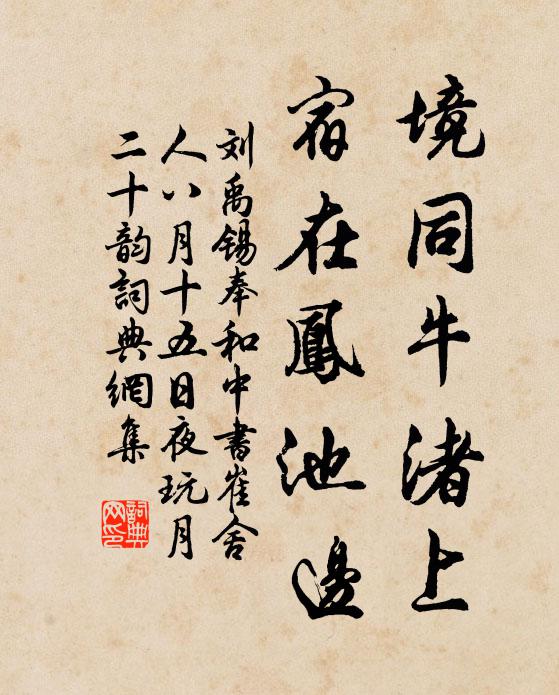 境同牛渚上
宿在鳳池邊
刘禹锡奉和中書崔舍
人八月十五日夜玩月
二十韵詞典網集
詞典网印